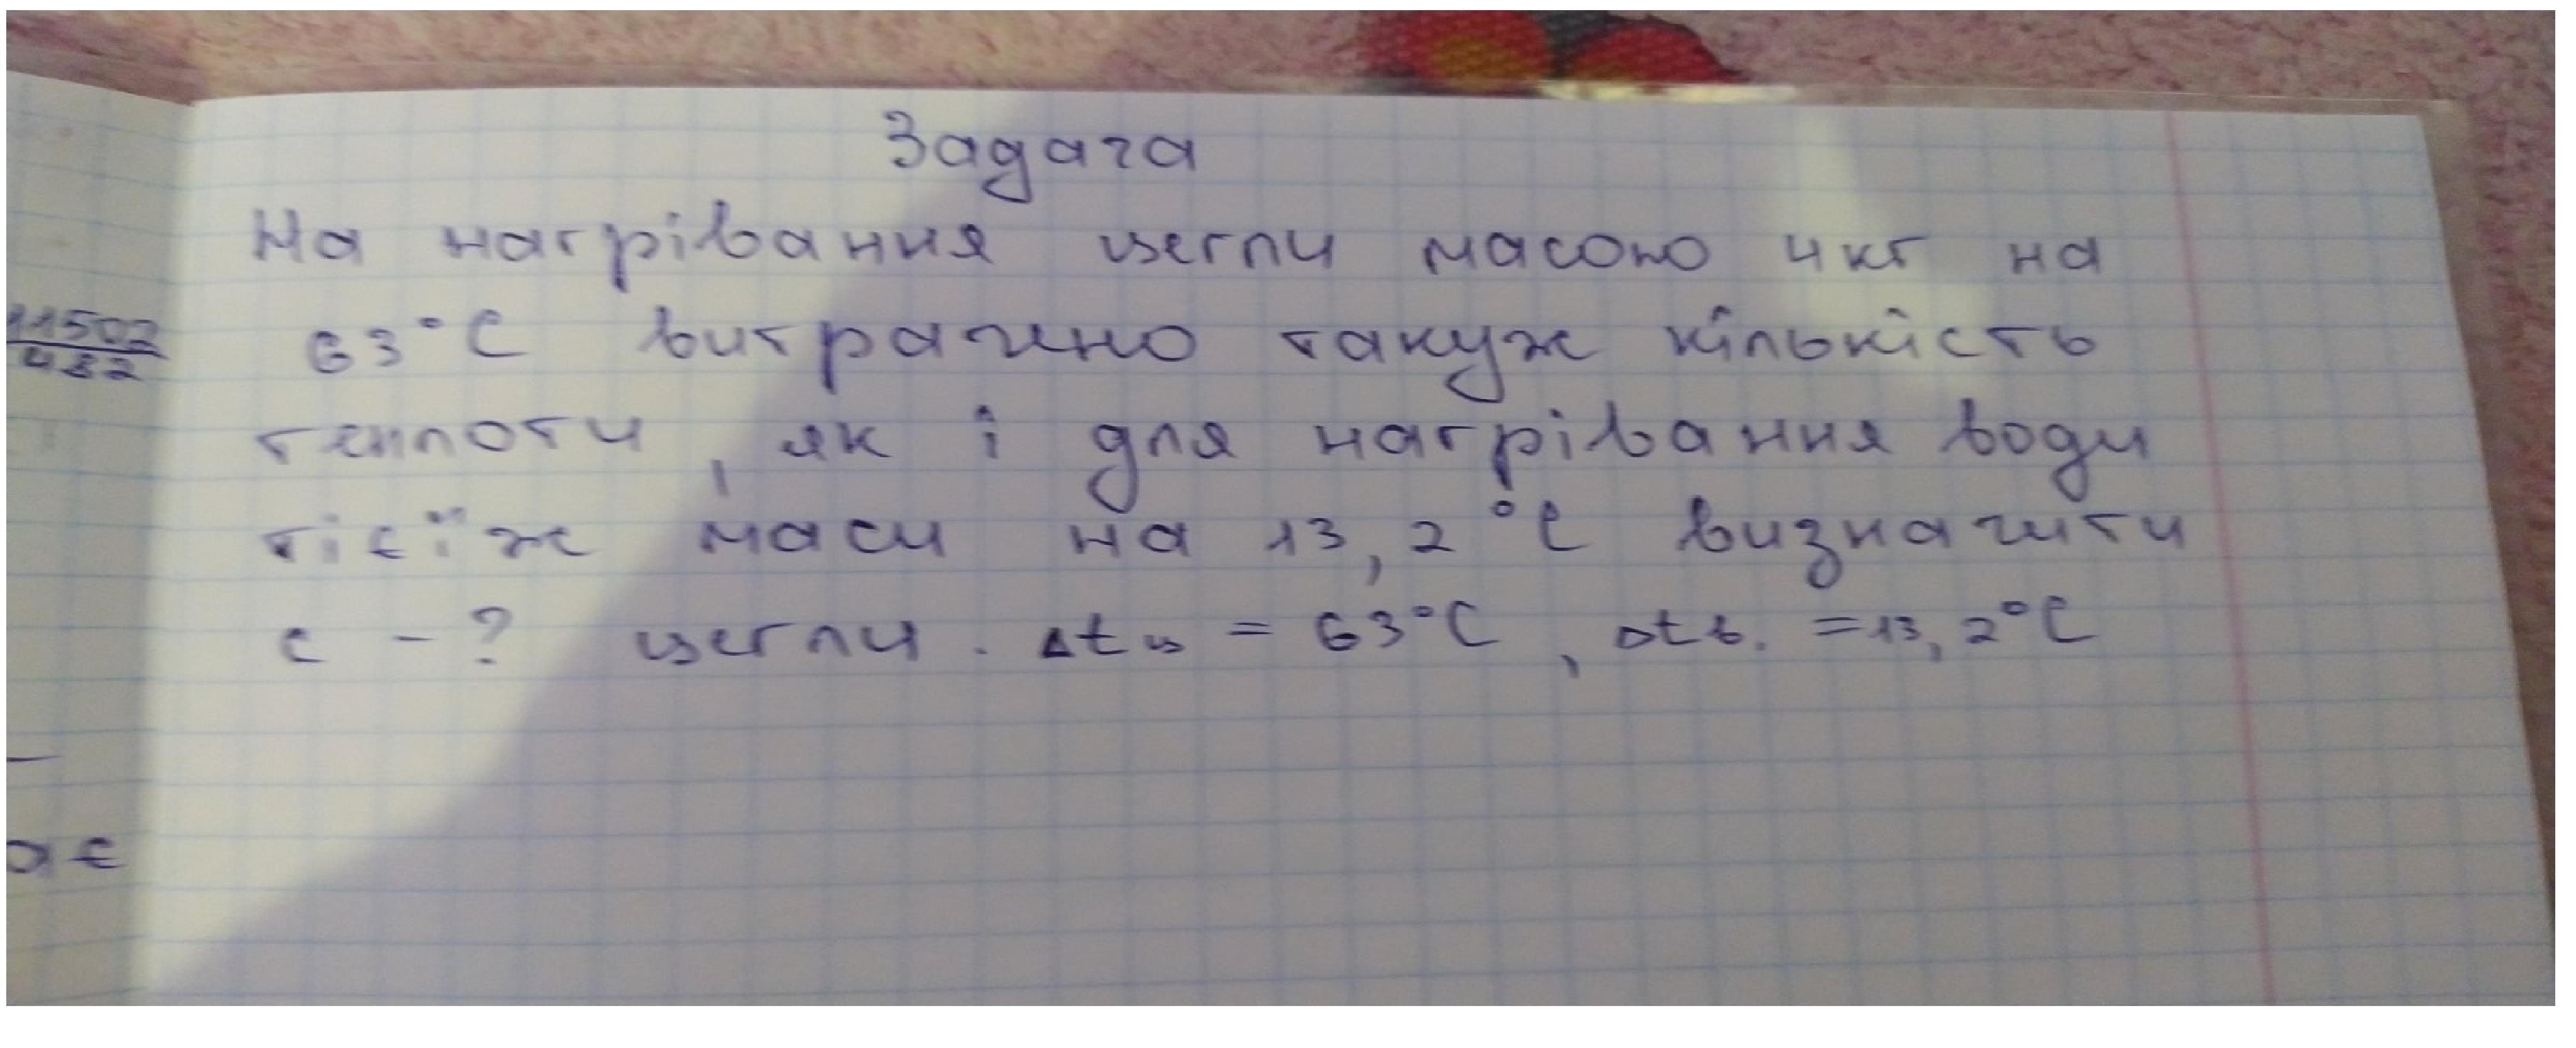 Задача
На нагрівання цегли масою 4 кг на
11502
482
63°C витрачно такуж кількість
теплоти, як і для нагрівання води
тієїж маси на 13,2 °C визначити
c - ? цегли. Δtц = 63°C, Δtв. = 13,2°C
ає